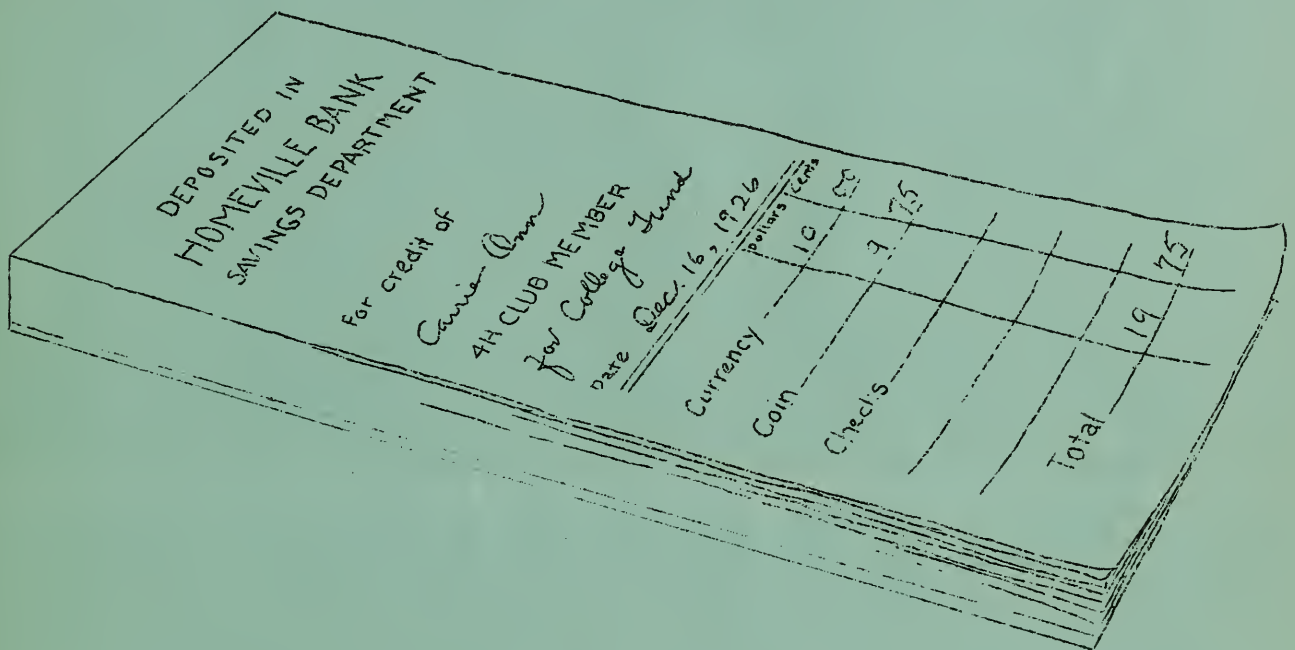 DEPOSITED IN
HOMEVILLE BANK
SAVINGS DEPARTMENT
For credit of
Carrie Ann
4H CLUB MEMBER
for College Fund
Date Dec. 16, 1926
Dollars Cents
Currency 10 00
Coin 9 75
Checks
Total 19 75